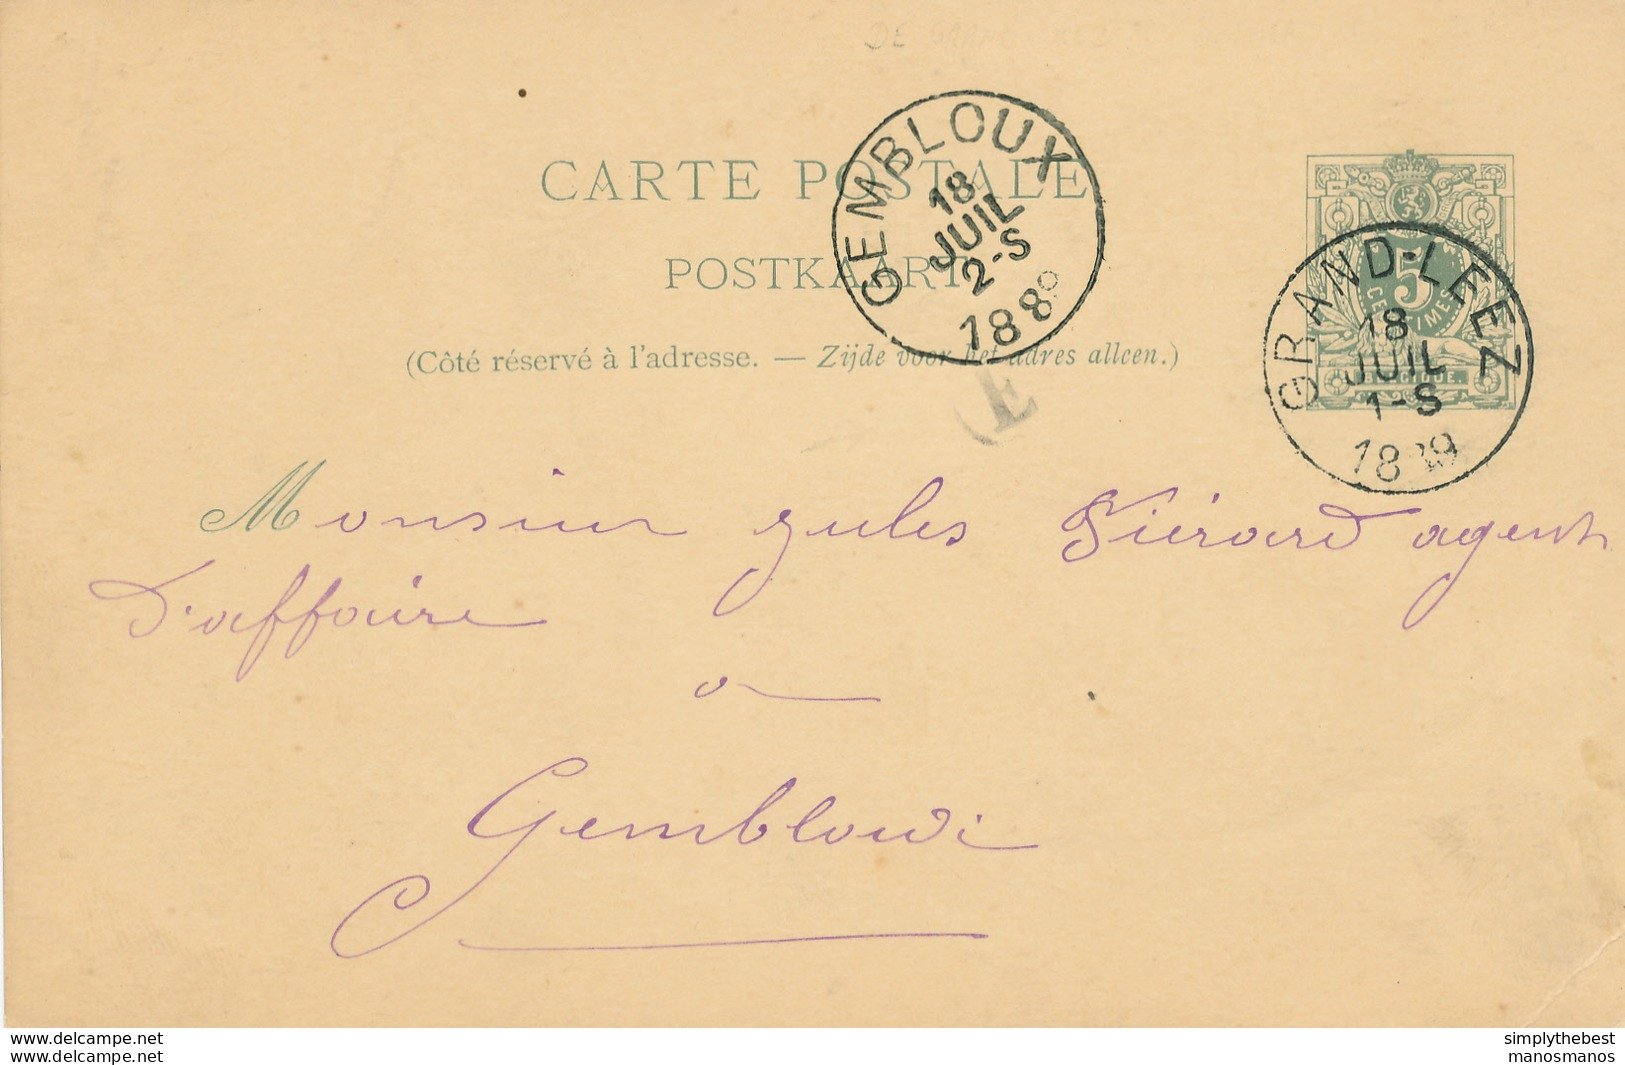 GEMBLOUX
18
JUIL
2-S
1889
CARTE POSTALE
POSTKAART
(Côté réservé à l'adresse. — Zijde voor het adres alleen.)
5
CENTIMES
BELGIQUE.
GRAND-LEEZ
18
JUIL
1-S
1889
E
Monsieur Jules Piérard agent
d'affaire
à
Gembloux
delcampe.net
manosmanos
simplythebest
manosmanos